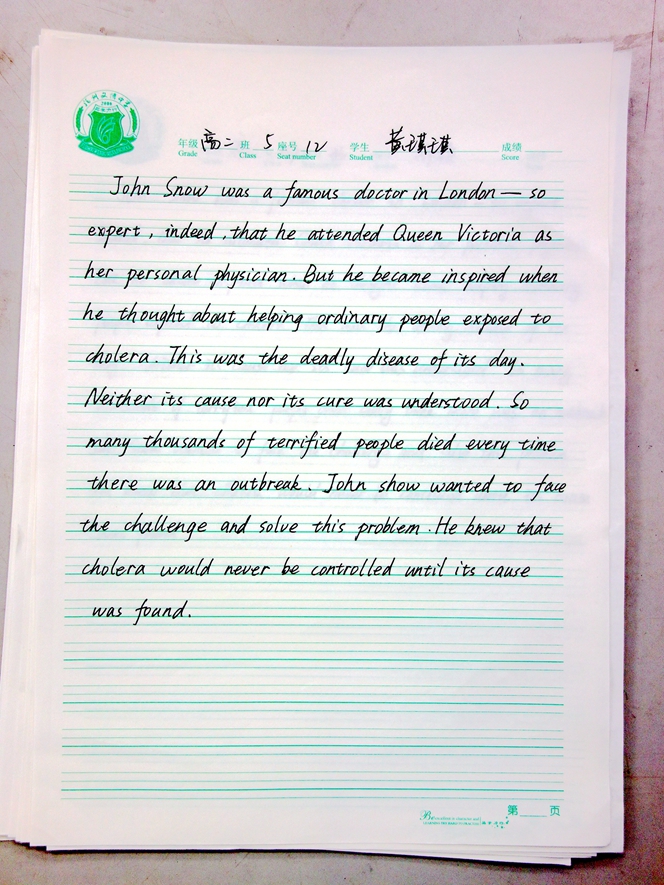 2000
年级 高二 班 5 座号 12 学生 黄琪琪 成绩
Grade Class Seat number Student Score
John Snow was a famous doctor in London — so
expert , indeed , that he attended Queen Victoria as
her personal physician. But he became inspired when
he thought about helping ordinary people exposed to
cholera. This was the deadly disease of its day.
Neither its cause nor its cure was understood. So
many thousands of terrified people died every time
there was an outbreak. John show wanted to face
the challenge and solve this problem. He knew that
cholera would never be controlled until its cause
was found.
第 页